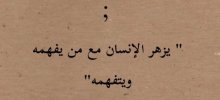 ;
" يزهر الإنسان مع من يفهمه
ويتفهمه"